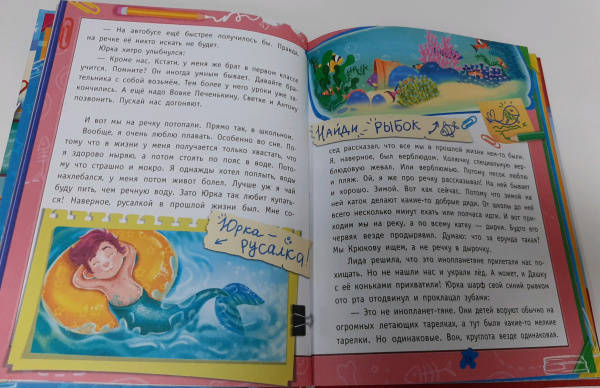 — На автобусе ещё быстрее получилось бы. Правда,
на речке её никто искать не будет.
Юрка хитро улыбнулся:
— Кроме нас. Кстати, у меня же брат в первом классе
учится. Помните? Он иногда умным бывает. Давайте бра-
тельника с собой возьмём. Тем более у него уроки уже за-
кончились. А ещё надо Вовке Печенькину, Светке и Антону
позвонить. Пускай нас догоняют.
И вот мы на речку потопали. Прямо так, в школьном.
Вообще, я очень люблю плавать. Особенно во сне. По-
тому что в жизни у меня получается только хвастать, что
я здорово ныряю, а потом стоять по пояс в воде. Пото-
му что страшно и мокро. Я однажды хотел поплыть, воды
нахлебался, у меня потом живот болел. Лучше уж я чай
буду пить, чем речную воду. Зато Юрка так любит купать-
ся! Наверное, русалкой в прошлой жизни был. Мне со-
Юрка —
русалка!
Найди - рыбок
сед рассказал, что все мы в прошлой жизни кем-то были.
Я, наверное, был верблюдом. Колючку специальную вер-
блюдовую жевал. Или верблюжью. Потому песок люблю
и пляж. Ой, я же про речку рассказывал! На ней бывает
и хорошо. Зимой. Вот как сейчас. Потому что зимой на
ней каток делают какие-то добрые дяди. От школы до неё
всего несколько минут ехать или полчаса идти. И вот при-
ходим мы на реку, а по всему катку — дырки. Будто его
червяк везде продырявил. Думаю: что за ерунда такая?
Мы Крюкову ищем, а не речку в дырочку.
Лида решила, что это инопланетяне прилетали нас по-
хищать. Но не нашли нас и украли лёд. А может, и Дашку
с её коньками прихватили! Юрка шарф свой синий рывком
ото рта отодвинул и проклацал зубами:
— Это не инопланет-тяне. Они детей воруют обычно на
огромных летающих тарелках, а тут были какие-то мелкие
тарелки. Но одинаковые. Вон, круглота везде одинаковая.